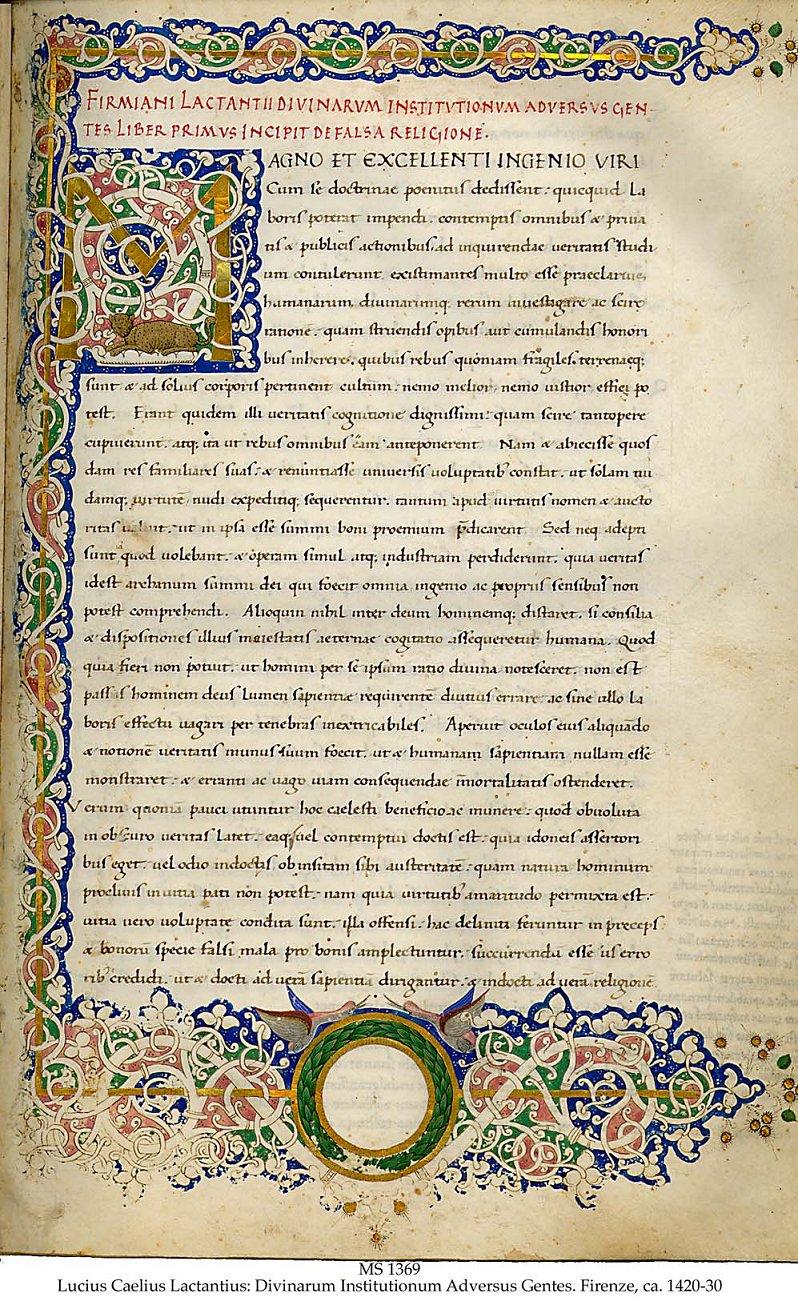 FIRMIANI LACTANTII DIVINARVM INSTITVTIONVM ADVERSVS GEN-
TES LIBER PRIMVS INCIPIT DE FALSA RELIGIONE·
MAGNO ET EXCELLENTI INGENIO VIRI
Cum se doctrinae poenitus dedissent: quicquid La
boris poterat impendi. contemptis omnibus & priua
tis & publicis actionibus. ad inquirendae ueritatis studi
um contulerunt. existimantes multo esse praeclarius,
humanarum, diuinarumq; rerum inuestigare ac scire
ratione: quam struendis opibus aut cumulandis honori
bus inherere. quibus rebus quoniam fragiles. terrenaeq;
sunt & ad solius corporis pertinent cultum: nemo melior. nemo iustior effici po
test. Erant quidem illi ueritatis cognitione dignissimi: quam scire tantopere
cupiuerunt. atq; ita ut rebus omnibus eam anteponerent Nam & abiecisse quos
dam res familiares suas: & renuntiasse uniuersis uoluptatib; constat. ut solam nu
damq; uirtutē nudi expeditiq; sequerentur. tantum apud uirtutis nomen & aucto
ritas ut in ipsa esse summi boni proemium p̄dicarent Sed neq adepti
sunt quod uolebant. & operam simul atq; industriam perdiderunt. quia ueritas
idest archanum summi dei qui foecit omnia ingenio ac propriis sensibus non
potest comprehendi. Alioquin nihil inter deum hominemq; distaret. si consilia
& dispositiones illius maiestatis aeternae cogitatio assequeretur humana. Quod
quia fieri non potuit. ut homini per se ipsum ratio diuina notesceret. non est
passus hominem deus Lumen sapientiae requirentē diutius errare. ac sine ullo La
boris effectu uagari per tenebras inextricabiles. Aperuit oculos eius aliquādo
& notionē ueritatis munus suum foecit. ut & humanam sapientiam nullam esse
monstraret: & erranti ac uago uiam consequendae īmortalitatis ostenderet.
Verum qm̄ pauci utuntur hoc caelesti beneficio ac munere: quod obuoluta
in obscuro ueritas Latet. eaq; uel contemptui doctis est: quia idoneis assertori
bus eget. uel odio indoctis ob insitam sibi austeritatē: quam natura hominum
procliuis in uitia pati non potest: nam quia uirtutib; amaritudo permixta est:
uitia uero uoluptate condita sunt. illa offensi. hac deliniti feruntur in preceps
& bonorū specie falsi mala pro bonis amplectuntur. succurrendū esse iis erro
rib; credidi. ut & docti ad uerā sapientiā dirigantur. & indocti ad uerā religionē
MS 1369
Lucius Caelius Lactantius: Divinarum Institutionum Adversus Gentes. Firenze, ca. 1420-30